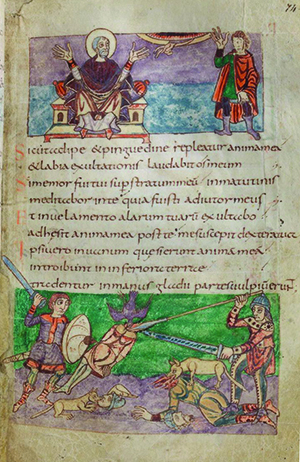 74
Sicut adipe & pinguedine repleatur anima mea
& labia exultationis laudabit os meum
Si memor fui tui sup stratum meū in matutinis
meditabor in te quia fuisti adiutor meus
Et in uelamento alarum tuarū exultabo
adhesit anima mea post te me suscepit dextera tua
Ipsi uero in uanum quesierunt animā meā
introibunt in inferiora terrae
tradentur in manus gladii partes uulpiū erunt